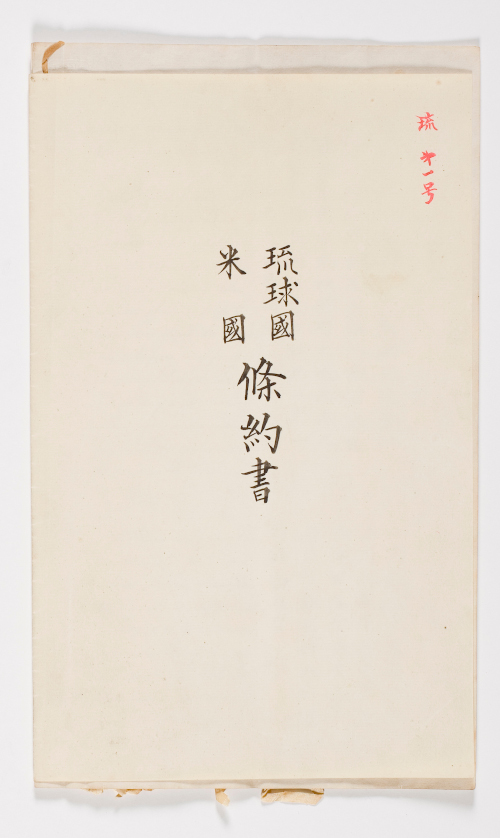 琉 第一号
琉球國
米國
條約書